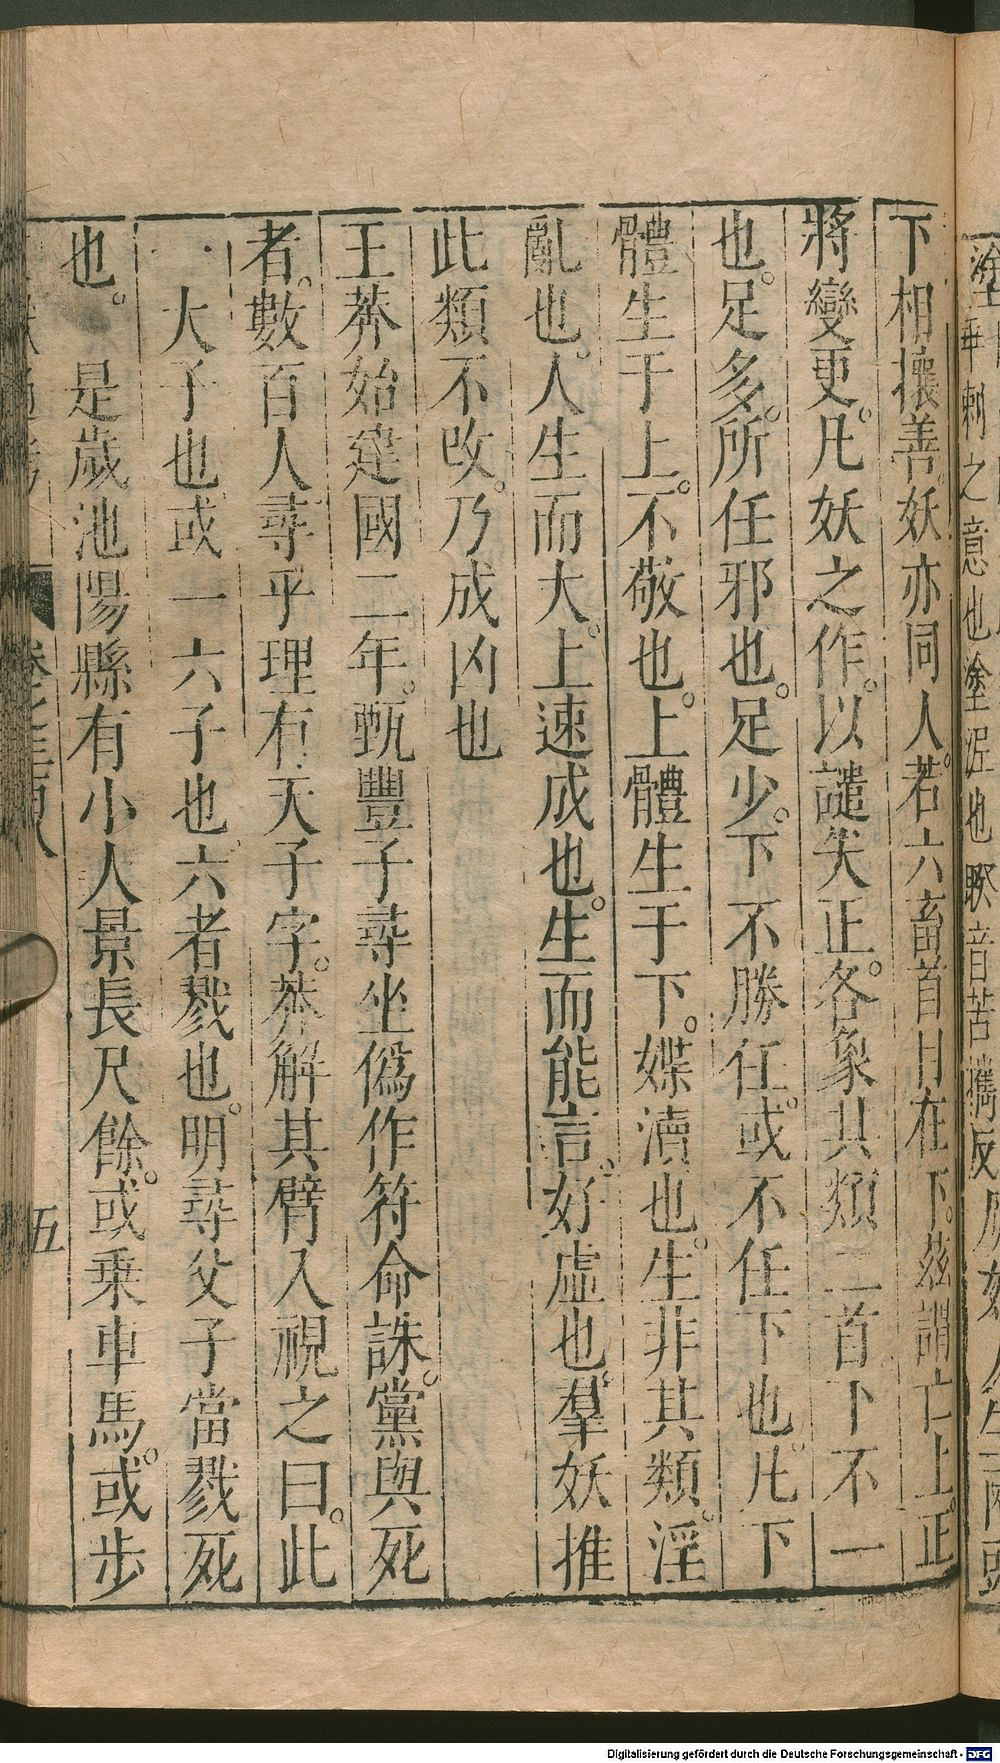 塗
垂刺之意也塗泥也睽音苦攜反
下相攘善妖亦同人若六畜首目在下茲謂亡上正
將變更。凡妖之作。以譴失正。各象其類二首下不一
也。足多。所任邪也。足少。下不勝任。或不任下也。凡下
體生于上。不敬也。上體生于下。媟瀆也。生非其類。淫
亂也。人生而大。上速成也。生而能言。好虛也。羣妖推
此類不改。乃成凶也
王莽始建國二年。甄豐子尋坐僞作符命誅。黨與死
者。數百人尋手理有天子字。莽解其臂入視之曰。此
一大子也或一六子也六者戮也。明尋父子當戮死
也。是歲池陽縣有小人景長尺餘。或乘車馬。或步
五
Digitalisierung gefördert durch die Deutsche Forschungsgemeinschaft - DFG